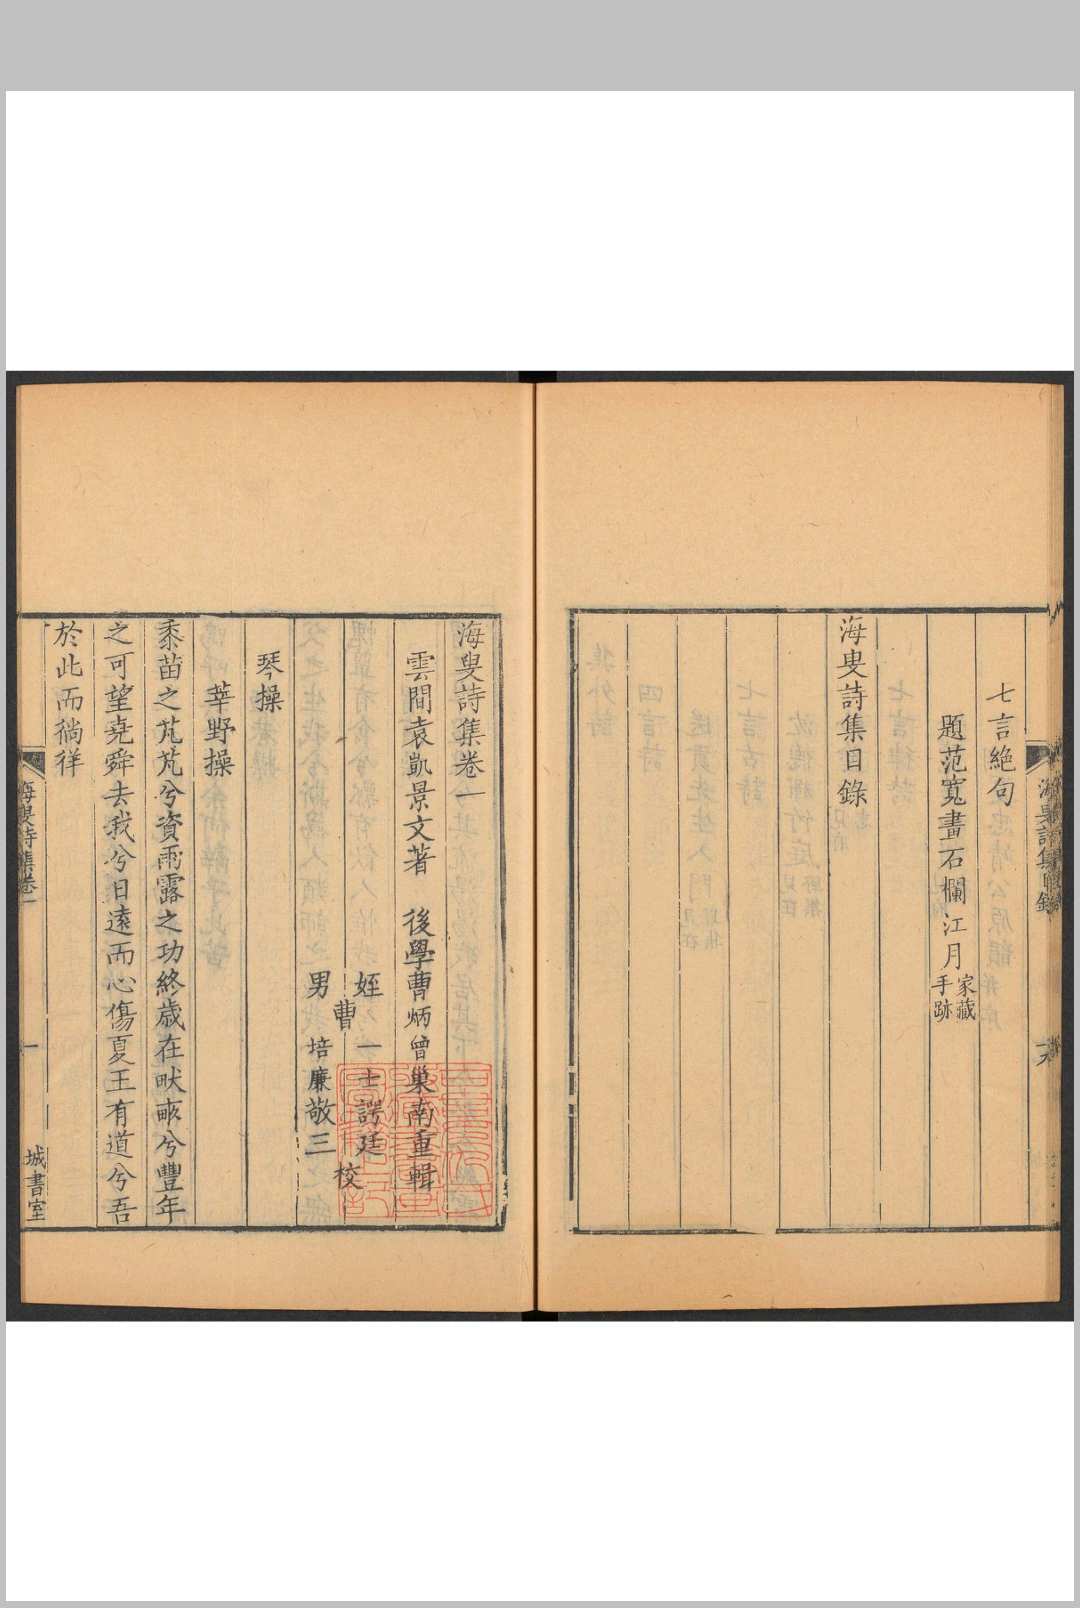 七言絕句
題范寬畫石欄江月家藏手跡
海叟詩集目錄
海叟詩集卷一
雲間袁凱景文著　後學曹炳曾巢南重輯
姪　一士諤廷
曹　校
男　培廉敬三
琴操
莘野操
黍苗之芃芃兮資雨露之功終歲在畎畝兮豐年
之可望堯舜去我兮日遠而心傷夏王有道兮吾
於此而徜徉
海叟詩集卷一
一
城書室